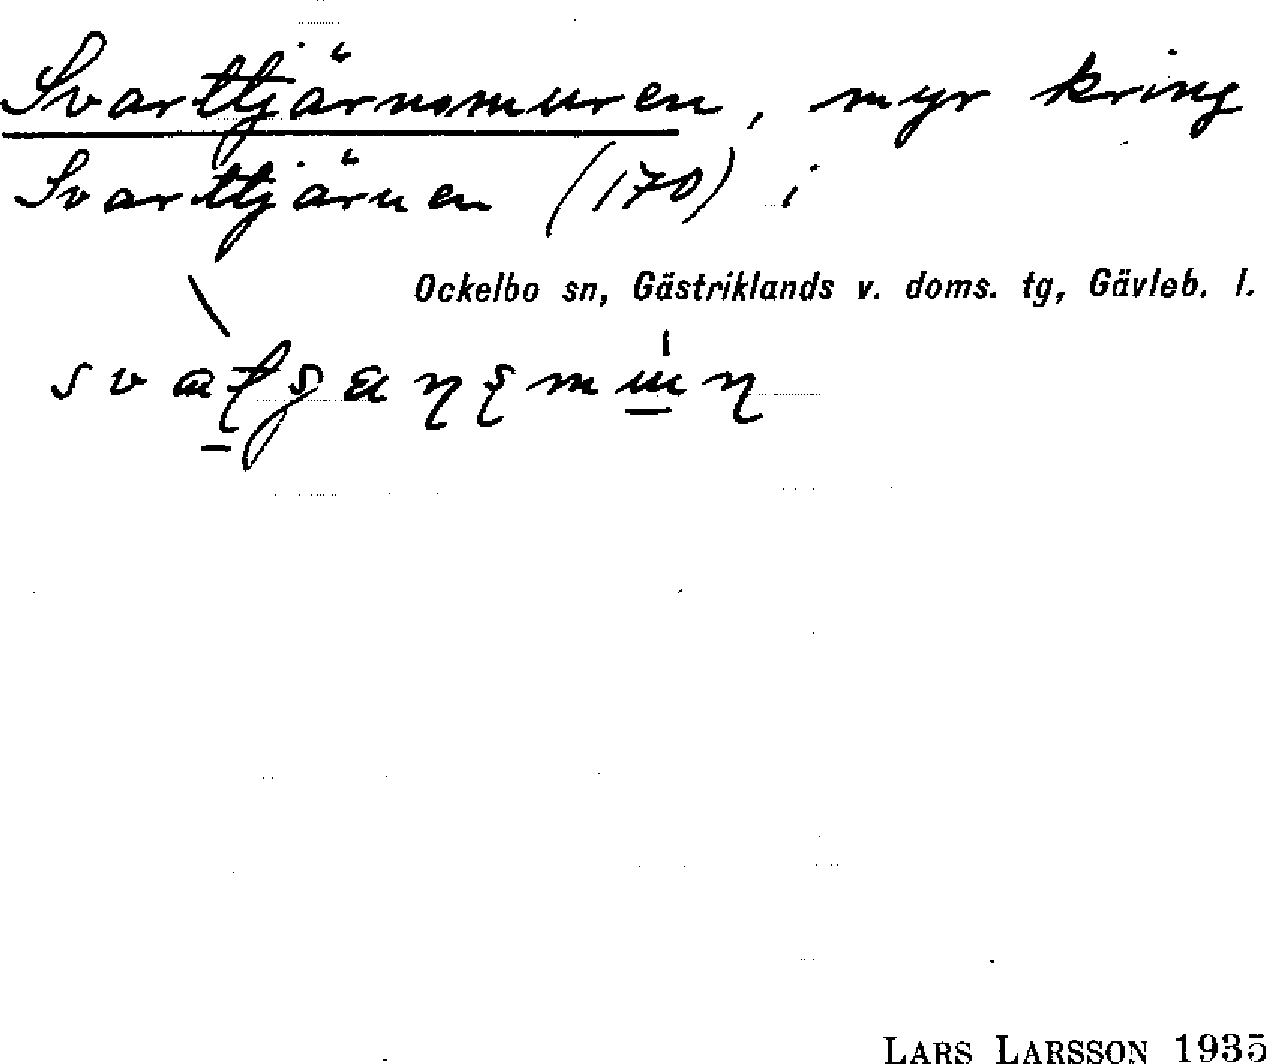 Svarttjärnsmuren, myr kring
Svarttjärnen (170) i
Ockelbo sn, Gästriklands v. doms. tg, Gävleb. l.
LARS LARSSON 1935